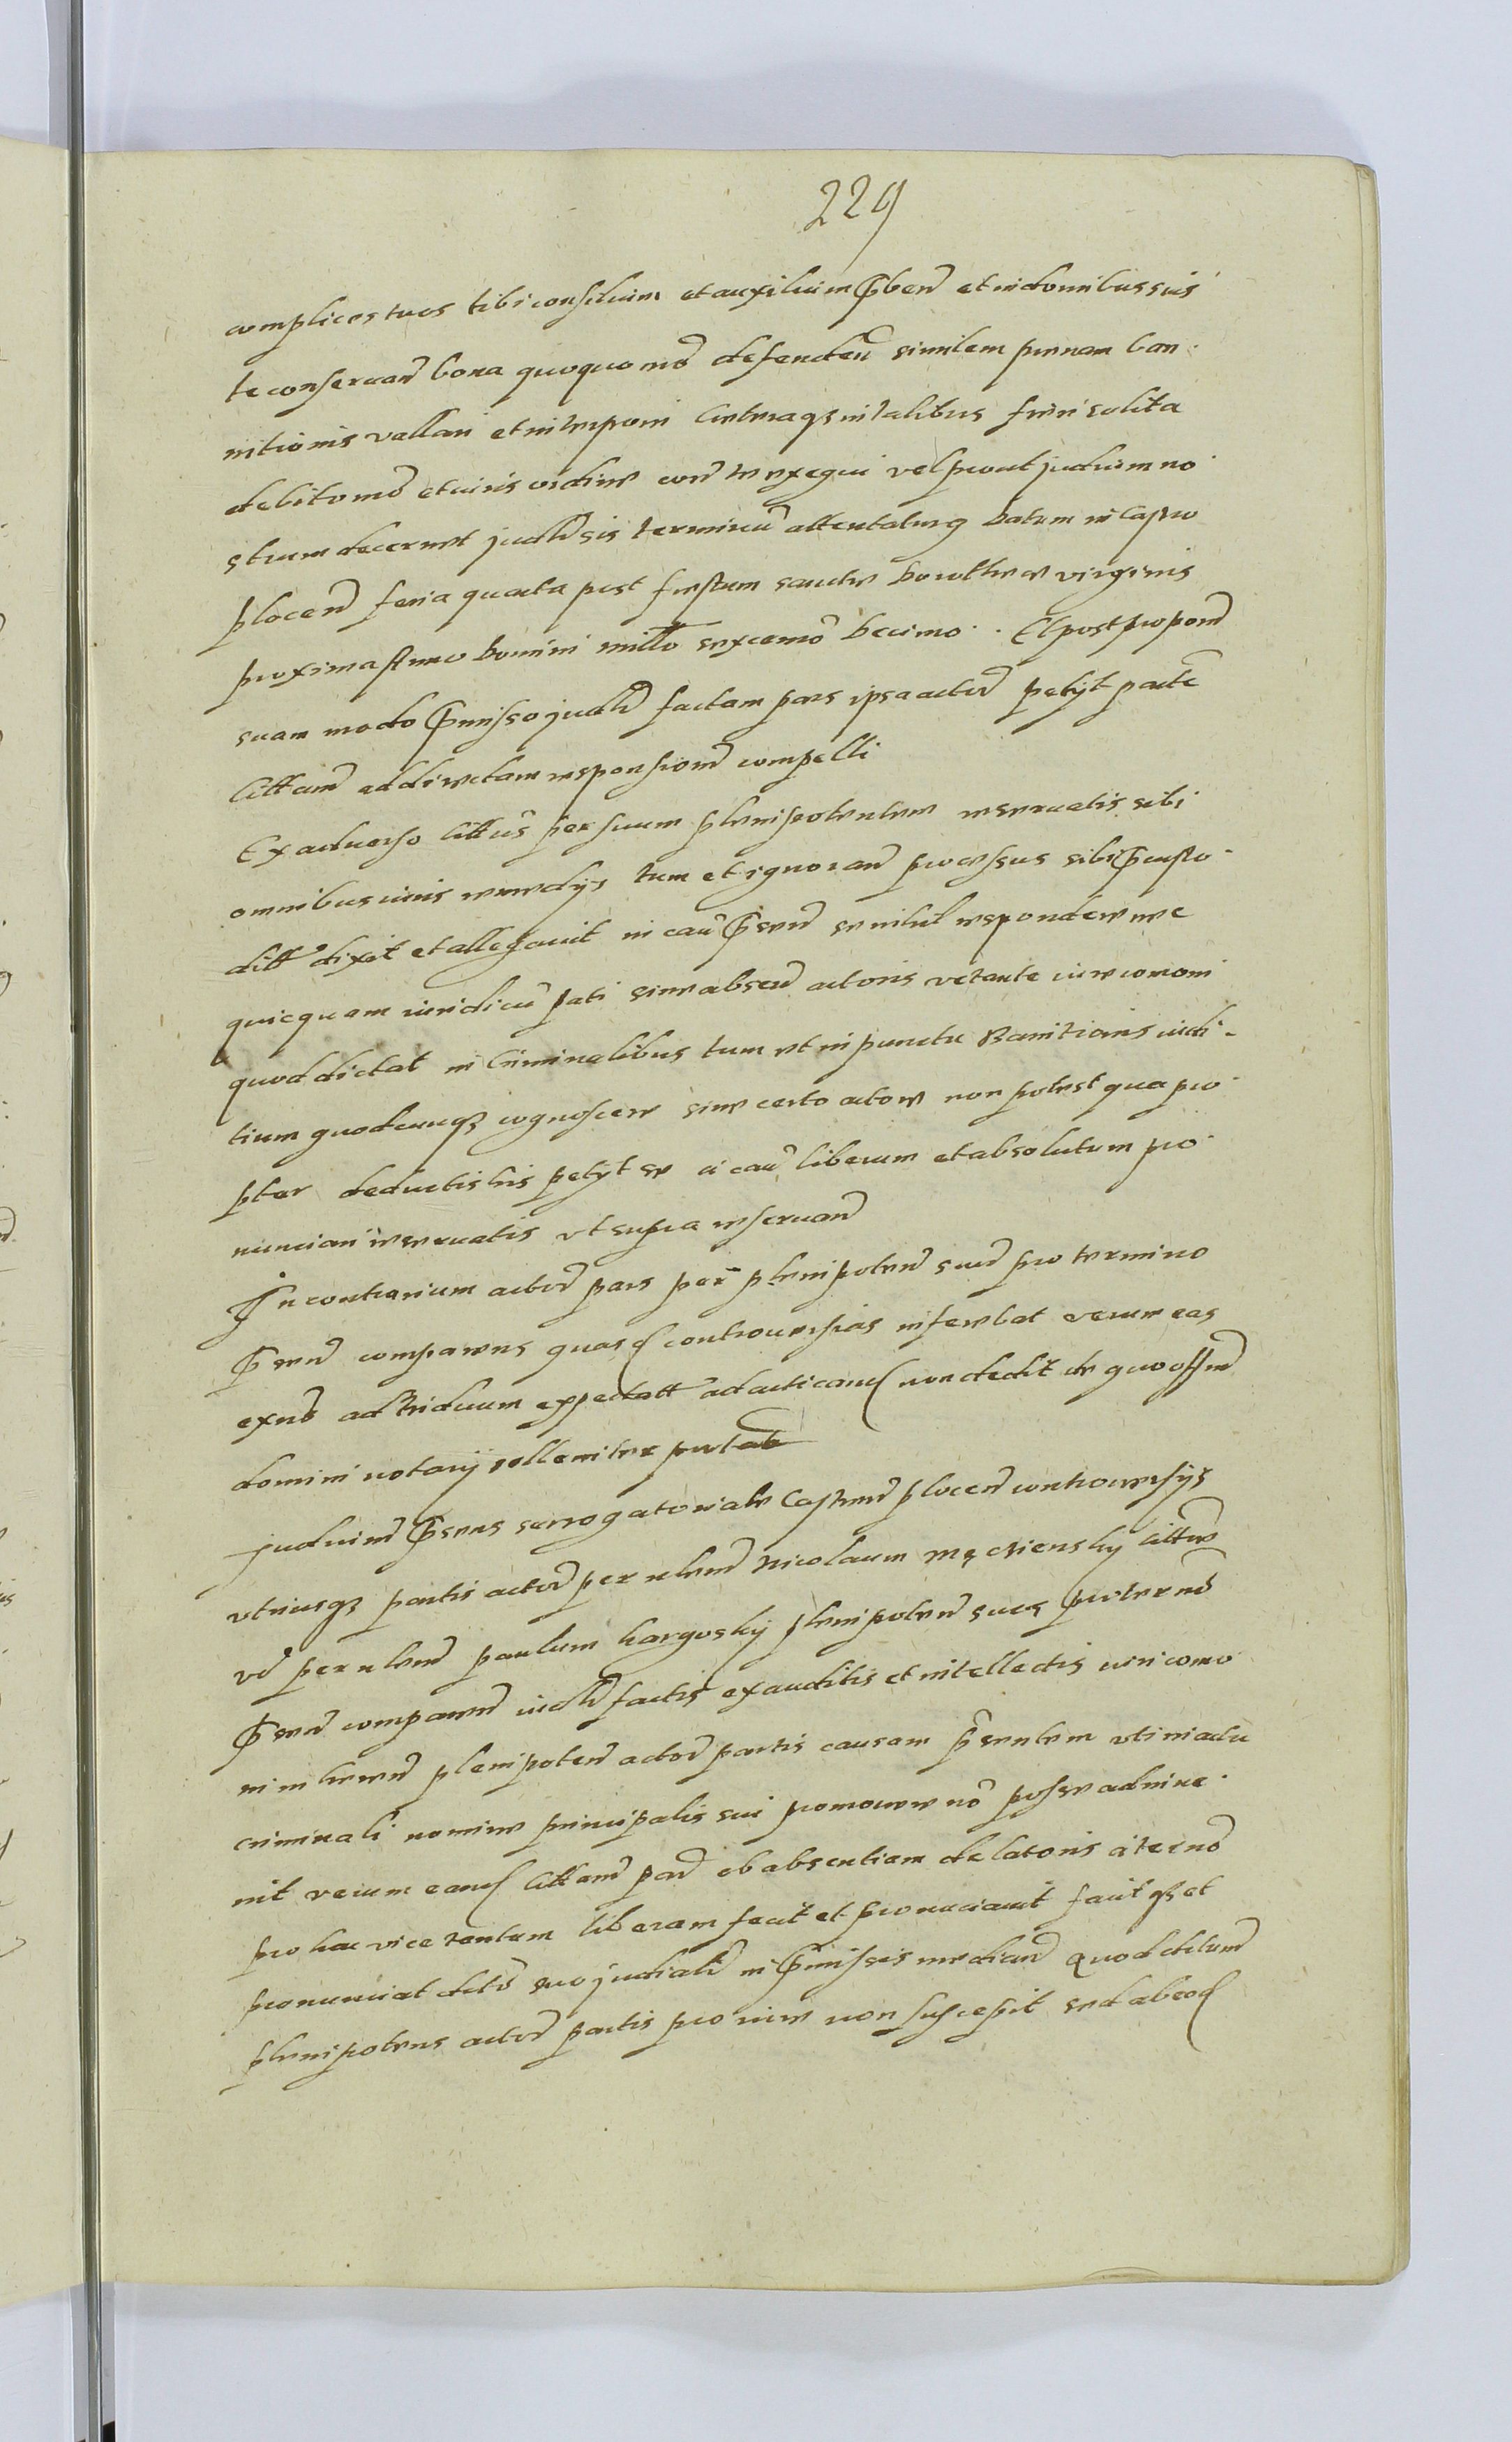 229
complices tuos tibi consilium et auxilium p̃ben̄ et in domibus suis
te conseruan̄ bona quoquo mõ defenden̄ similem poenam ban-
nitionis vallari et interponi Caeteraqȝ in talibus fieri solita
debito mõ et iuris ordine coram te exequi vel prout judicium no-
strum decernet judlr̃ sis terminū attentaturg Datum in Castro
plocen̄ feria quarta post festum sanctae Dorotheae virginis
proxima Anno Domini millo sexcemõ Decimo. Et post propom̄
suam modo p̃misso judlr̃ factam pars ipsa actor̃ petijt partē
cittam̄ ad directam responsionem̄ compelli
Ex aduerso cittus̃ per suum plenipotentem reseruatis sibi
omnibus iuris remedijs tum et ignoran̄ processus sibi p̃custo-
ditt̃ dixit et allegauit in cau͂ p̃sen̄ se nihil respondere nec
quicquam iuridicū pati sine absen̄ actoris vetante iure comoni
quod dictat in Criminalibus tum et in punctu Banitionis iudi-
tium quodcunqȝ cognoscere sine certo actore non potest qua pro-
pter deductis his petijt se a cau͂ liberum et absolutum pro-
nunciari reseruatis vt supra reseruan̄
In contrarium actor̃ pars per plenipoten̄ suū pro termino
p̃sen̄ comparens quasd controuersias inferebat verum eas
exnõ ad triduum expectatt̃ ad acticand non dedit de quo offm̄
domini notarij sollenniter ptat̃
Judicium̄ p̃sens surrogatoriale Castren̄ plocen̄ controuersijs
vtriusqȝ partis actor̃ per nlem̄ Nicolaum Męcziensky cittae
vō per nlem̄ paulum hargosky plenipoten̄ suos pro termõ
p̃sen̄ comparen̄ iudlr̃ factis exauditis et intellectis iuri como
ni inheren̄ plenipoten̄ actor̃ partis causam p̃sentem vti in actu
criminali nomine principalis sui promouere nõ posse adinue-
nit verum eand cittam̄ par̄ ob absentiam delatoris a termõ
pro hac vice tantum liberam fecit et pronunciauit facitqȝ et
pronunciat dctõ suo judiali in p̃missis median̄ Quod dctum̄
plenipotens actor̃ partis pro iure non suscepit sed ab eod